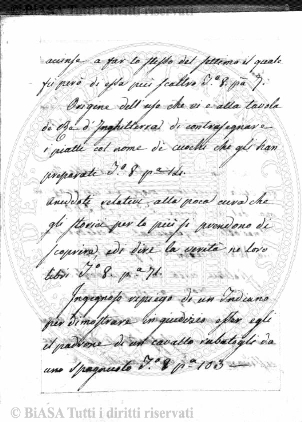 accinse a far lo stesso del settemo il quale
fu però di essa più scaltro T.º 8. pª 7.
Origene dell'uso che vi e alla tavola
de Re d'Inghilterra di contrasegnare
i piatti col nome di cuochi che gli han
preparati T.º 8 pª
Anecdoti relativi alla poca cura che
gli storici per lo più si prendono di
scoprire, e di dire la verità ne loro
libri T.º 8. pª 76.
Ingegnoso ripiego di un Indiano
per dimostrare in giudizio esser egli
il padrone di un cavallo rubatogli da
uno Spagnuolo T.º 8 pª 103
© BiASA Tutti i diritti riservati